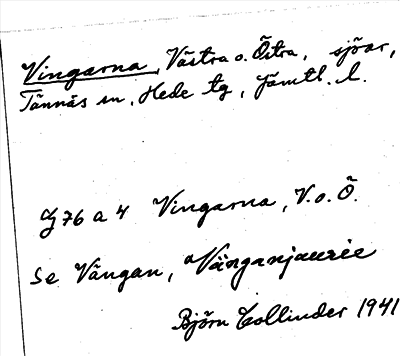 Vingarna, Västra o. Östra, sjöar,
Tännäs sn, Hede tg, Jämtl. l.
J 76 a 4 Vingarna, V. o. Ö.
Se Vångan, Vånganjaurie
Björn Collinder 1941